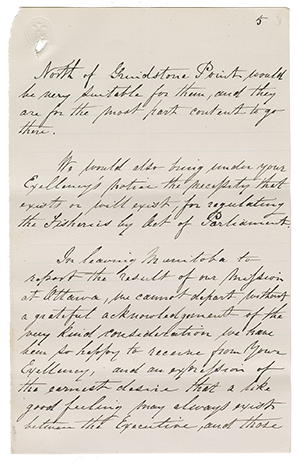 5
North of Grindstone Point, would
be very suitable for them, and they
are for the most part content to go
there.
We would also bring under your
Excellency's notice the necessity that
exists or will exist, for regulating
the Fisheries by Act of Parliament.
In leaving Manitoba to
report the result of our Mission
at Ottawa, we cannot depart without
a grateful acknowledgment of the
very kind consideration we have
been so happy to receive from Your
Excellency, and an expression of
the earnest desire that a like
good feeling may always exist
between the Executive, and those